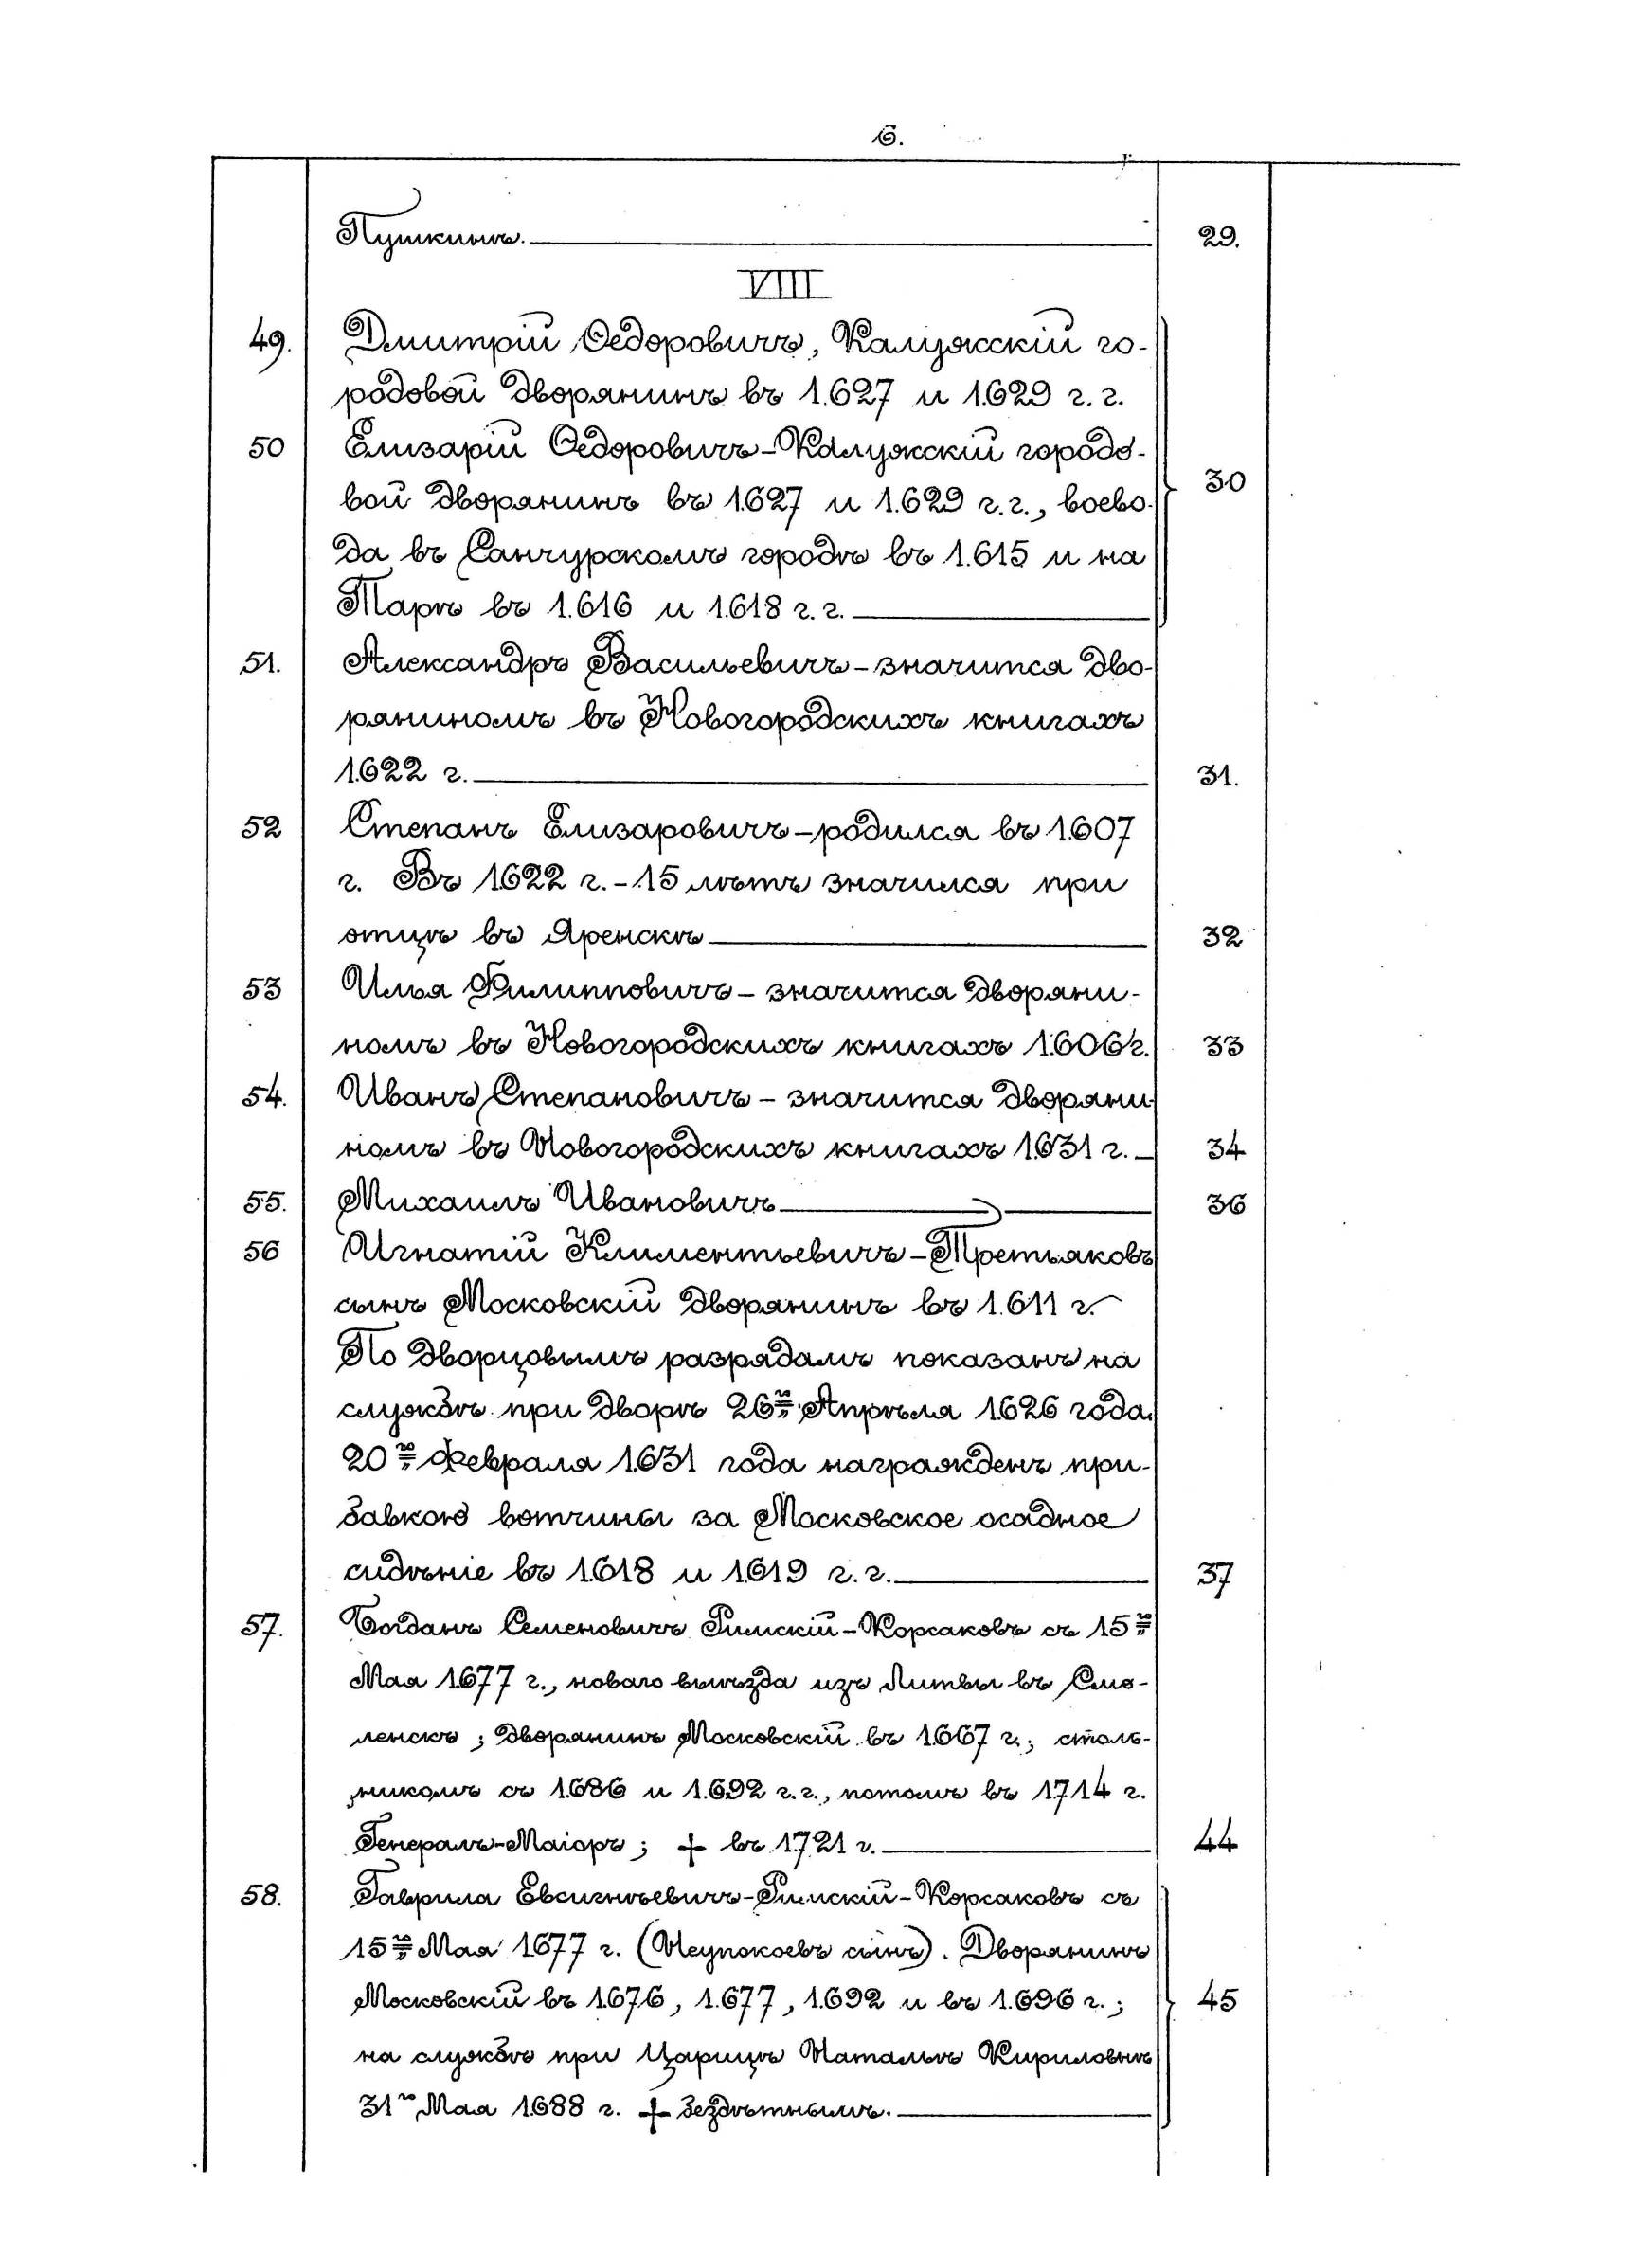 6.
Пушкинъ. 29.
VIII
49. Дмитрій Ѳедоровичъ, Калужскій го-
родовой дворянинъ въ 1627 и 1629 г. г.
50 Елизарій Ѳедоровичъ-Калужскій городо-
вой дворянинъ въ 1627 и 1629 г. г., воево- 30
да въ Санчурскомъ городѣ въ 1615 и на
Тарѣ въ 1616 и 1618 г. г.
51. Александръ Васильевичъ-значится дво-
ряниномъ въ Новогородскихъ книгахъ
1622 г. 31.
52 Степанъ Елизаровичъ-родился въ 1607
г. Въ 1622 г. - 15 лѣтъ значился при
отцѣ въ Яренскѣ 32
53 Илья Филипповичъ - значится дворяни-
номъ въ Новогородскихъ книгахъ 1606 г. 33
54. Иванъ Степановичъ - значится дворяни-
номъ въ Новогородскихъ книгахъ 1631 г. 34
55. Михаилъ Ивановичъ 36
56 Игнатій Климентьевичъ-Третьяковъ
сынъ Московскій дворянинъ въ 1611 г.
По дворцовымъ разрядамъ показанъ на
службѣ при дворѣ 26го Апрѣля 1626 года.
20го Февраля 1631 года награжденъ при-
бавкою вотчины за Московское осадное
сидѣніе въ 1618 и 1619 г. г. 37
57. Богданъ Семеновичъ Римскій-Корсаковъ съ 15го
Мая 1677 г., новаго выѣзда изъ Литвы въ Смо-
ленскъ; дворянинъ Московскій въ 1667 г.; столь-
никомъ съ 1686 и 1692 г. г., потомъ въ 1714 г.
Генералъ-Маіоръ; + въ 1721 г. 44
58. Гаврила Евсигнѣевичъ-Римскій-Корсаковъ съ
15го Мая 1677 г. (Неупокоевъ сынъ). Дворянинъ
Московскій въ 1676, 1677, 1692 и въ 1696 г.; 45
на службѣ при Царицѣ Натальѣ Кириловнѣ
31го Мая 1688 г. + бездѣтнымъ.